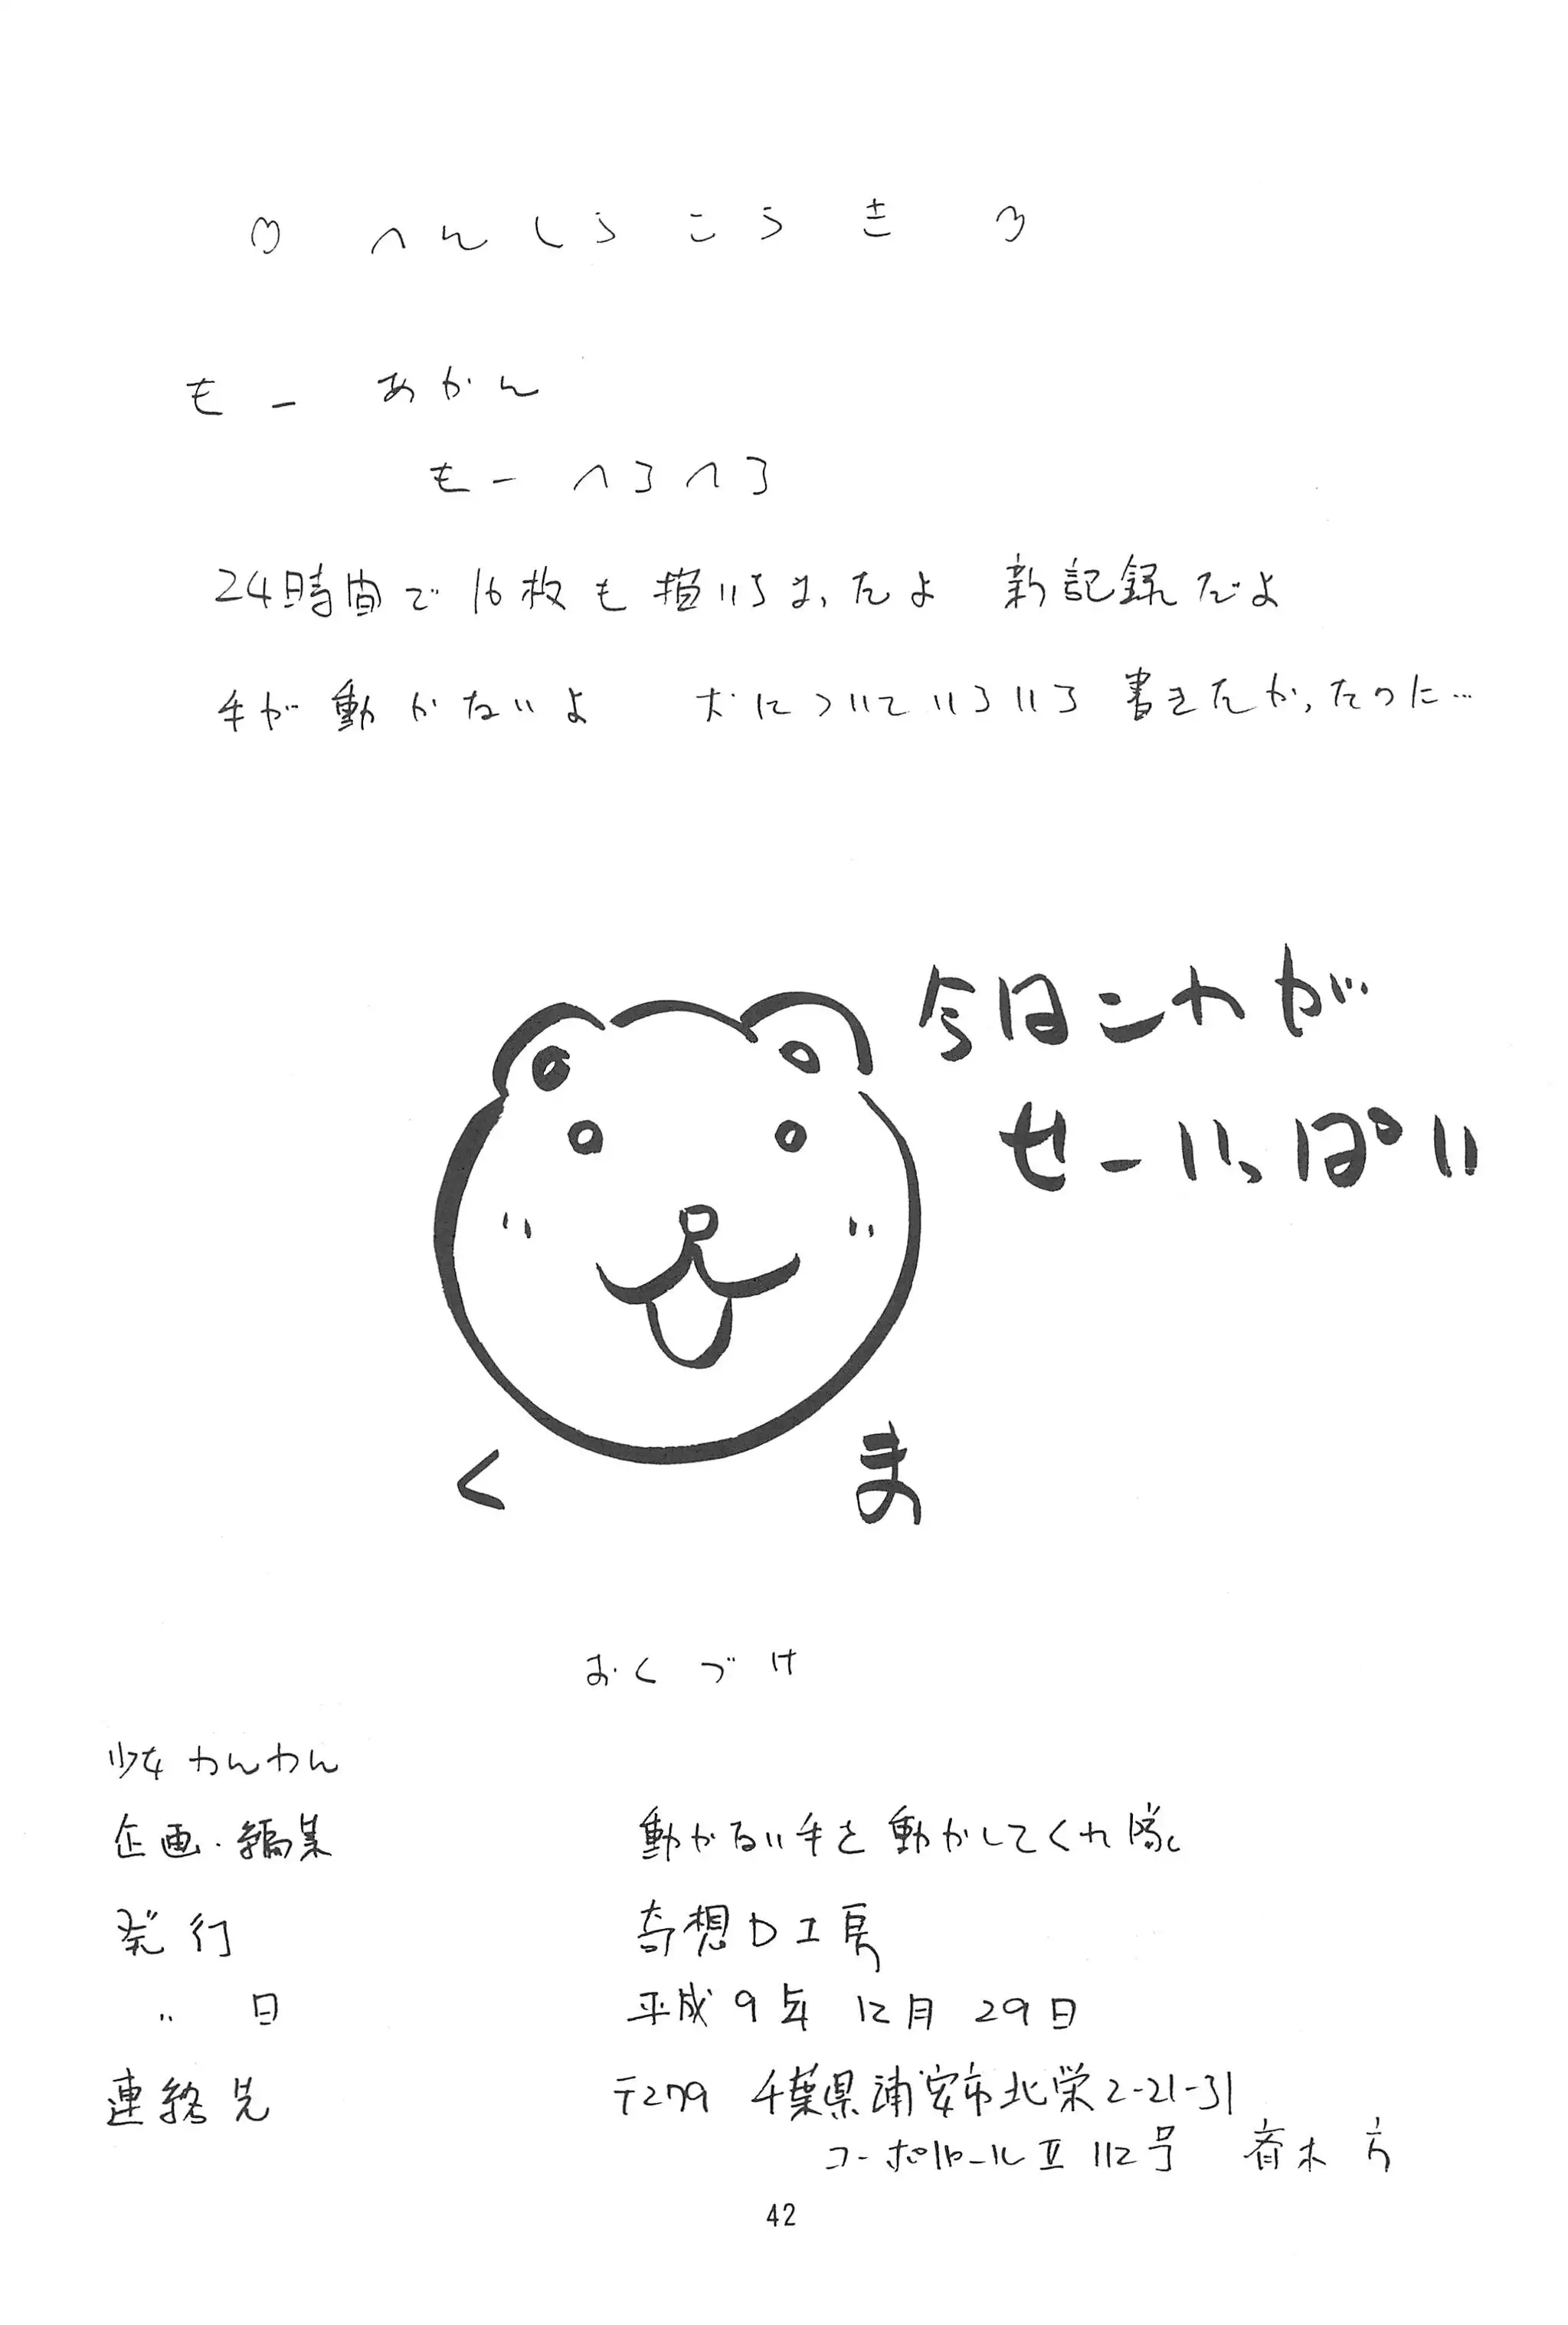 の へんしうこうき の
もー あかん
もー へろへろ
24時間で16枚も描いちまったよ 新記録だよ
手が動かないよ 犬についていろいろ書きたかったのに…
今はこれが
せーいっぱい
くま
おくづけ
少女わんわん
企画・編集 動かない手を動かしてくれ隊
発行 奇想D工房
〃 日 平成9年 12月 29日
連絡先 〒279 千葉県浦安市北栄2-21-31
コーポパロールⅡ 112号 斉木方
42